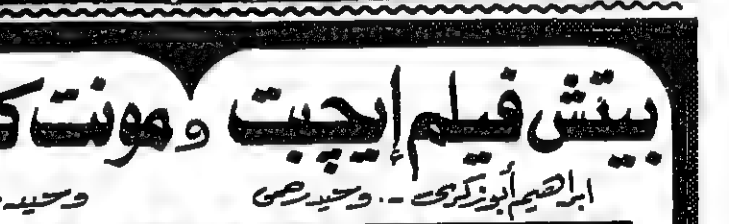 بيتش فيلم إيچبت و مونت ك
ابراهيم أبوزكرى .. وحيد رحمى وحيد